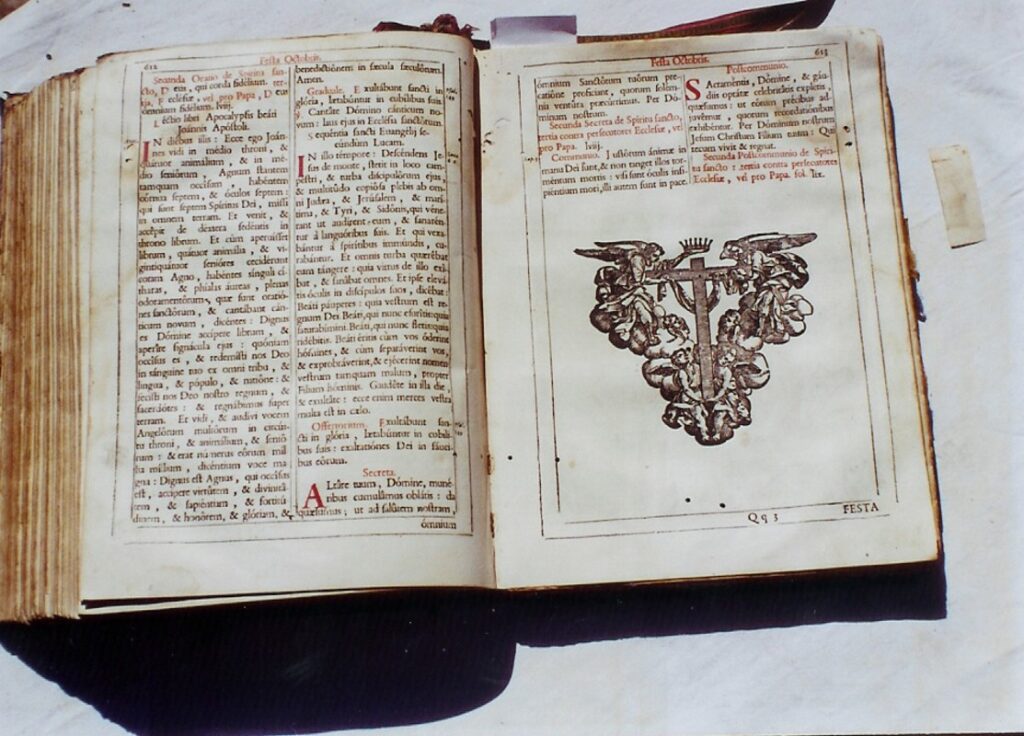 612
Festa Octobris.
Secunda Oratio de Spiritu san-
cto, Deus, qui corda fidelium. ter-
tia, Ecclesiæ, vel pro Papa, Deus
omnium fidelium. lvij.
Lectio libri Apocalypsis beati
Joannis Apóstoli.
IN diébus illis: Ecce ego Joán-
nes vidi in médio throni, &
quátuor animálium, & in mé-
dio seniórum, Agnum stantem
tamquam occísum, habéntem
córnua septem, & óculos septem:
qui sunt septem Spíritus Dei, missi
in omnem terram. Et venit, &
accépit de déxtera sedéntis in
throno librum. Et cùm aperuísset
librum, quátuor animália, & vi-
gintiquátuor senióres cecidérunt
coram Agno, habéntes sínguli cí-
tharas, & phíalas áureas, plenas
odoramentórum, quæ sunt oratió-
nes sanctórum, & cantábant cán-
ticum novum, dicéntes: Dignus
es Dómine accípere librum, &
aperíre signácula ejus: quóniam
occísus es, & redemísti nos Deo
in sánguine tuo ex omni tribu, &
lingua, & pópulo, & natióne: &
fecísti nos Deo nostro regnum, &
sacerdótes: & regnábimus super
terram. Et vidi, & audívi vocem
Angelórum multórum in circúi-
tu throni, & animálium, & senió-
rum: & erat númerus eórum míl-
lia míllium, dicéntium voce ma-
gna: Dignus est Agnus, qui occísus
est, accípere virtútem, & divinitá-
tem, & sapiéntiam, & fortitú-
dinem, & honórem, & glóriam, &
benedictiónem in sæcula sæculórum.
Amen.
Graduale. Exultábunt sancti in
glória, lætabúntur in cubílibus suis.
℣. Cantáte Dómino cánticum no-
vum: laus ejus in Ecclésia sanctórum.
Sequéntia sancti Euangélij se-
cundum Lucam.
IN illo témpore: Descéndens Je-
sus de monte, stetit in loco cam-
pestri, & turba discipulórum ejus,
& multitúdo copiósa plebis ab om-
ni Judǽa, & Jerúsalem, & marí-
tima, & Tyri, & Sidónis, qui véne-
rant ut audírent eum, & sanarén-
tur à languóribus suis. Et qui vexa-
bántur à spirítibus immúndis, cu-
rabántur. Et omnis turba quærébat
eum tángere: quia virtus de illo exí-
bat, & sanábat omnes. Et ipse elevá-
tis óculis in discípulos suos, dicébat:
Beáti páuperes: quia vestrum est re-
gnum Dei. Beáti, qui nunc esurítis: quia
saturabímini. Beáti, qui nunc fletis: quia
ridébitis. Beáti éritis cùm vos óderint
hómines, & cùm separáverint vos,
& exprobráverint, & ejécerint nomen
vestrum tamquam malum, propter
Fílium hóminis. Gaudéte in illa die,
& exultáte: ecce enim merces vestra
multa est in cælo.
Offertorium. Exultábunt san-
cti in glória, lætabúntur in cubíli-
bus suis: exultatiónes Dei in fáuci-
bus eórum.
Secreta.
ALtáre tuum, Dómine, muné-
ribus cumulámus oblátis: da
quæsumus; ut ad salútem nostram,
ómnium
Festa Octobris.
613
ómnium Sanctórum tuórum pre-
catióne profíciant, quorum solém-
nia ventúra præcúrrimus. Per Dó-
minum nostrum.
Secunda Secreta de Spiritu sancto,
tertia contra persecutores Ecclesiæ, vel
pro Papa. lvij.
Communio. Justórum ánimæ in
manu Dei sunt, & non tanget illos tor-
méntum mortis: visi sunt óculis insi-
piéntium mori, illi autem sunt in pace.
Postcommunio.
SAcraméntis, Dómine, & gáu-
diis optátæ celebritátis explétis,
quæsumus: ut eórum précibus ad-
juvémur, quorum recordatiónibus
exhibéntur. Per Dóminum nostrum
Jesum Christum Fílium tuum: Qui
tecum vivit & regnat.
Secunda Postcommunio de Spiri-
tu sancto: tertia contra persecutores
Ecclesiæ, vel pro Papa. fol. lix.
Qq 3
FESTA